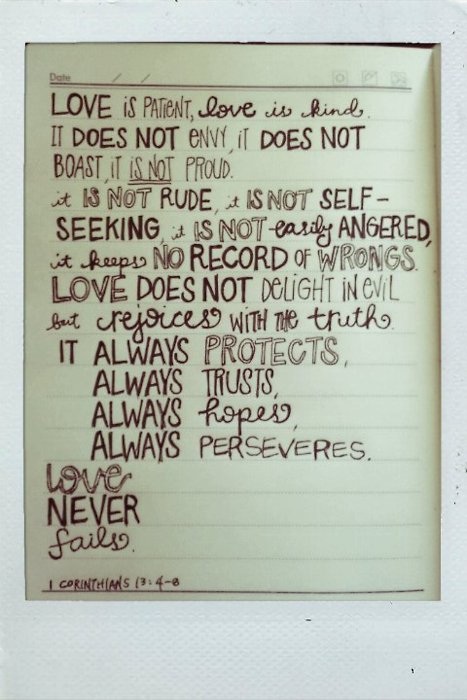 Date / /
LOVE iS PATiENT, love is kind.
IT DOES NOT eNVY, iT DOES NOT
BOAST, iT iS NOT PROUD.
it IS NOT RUDE, it IS NOT SELF-
SEEKING, it IS NOT easily ANGERED,
it keeps NO RECORD OF WRONGS.
LOVE DOES NOT DeLiGHT iN EViL
but rejoices WiTH THe truth.
IT ALWAYS PROTECTS,
ALWAYS TRUSTS,
ALWAYS hopes,
ALWAYS PERSEVERES.
love
NEVER
fails.
1 CORINTHIANS 13:4-8